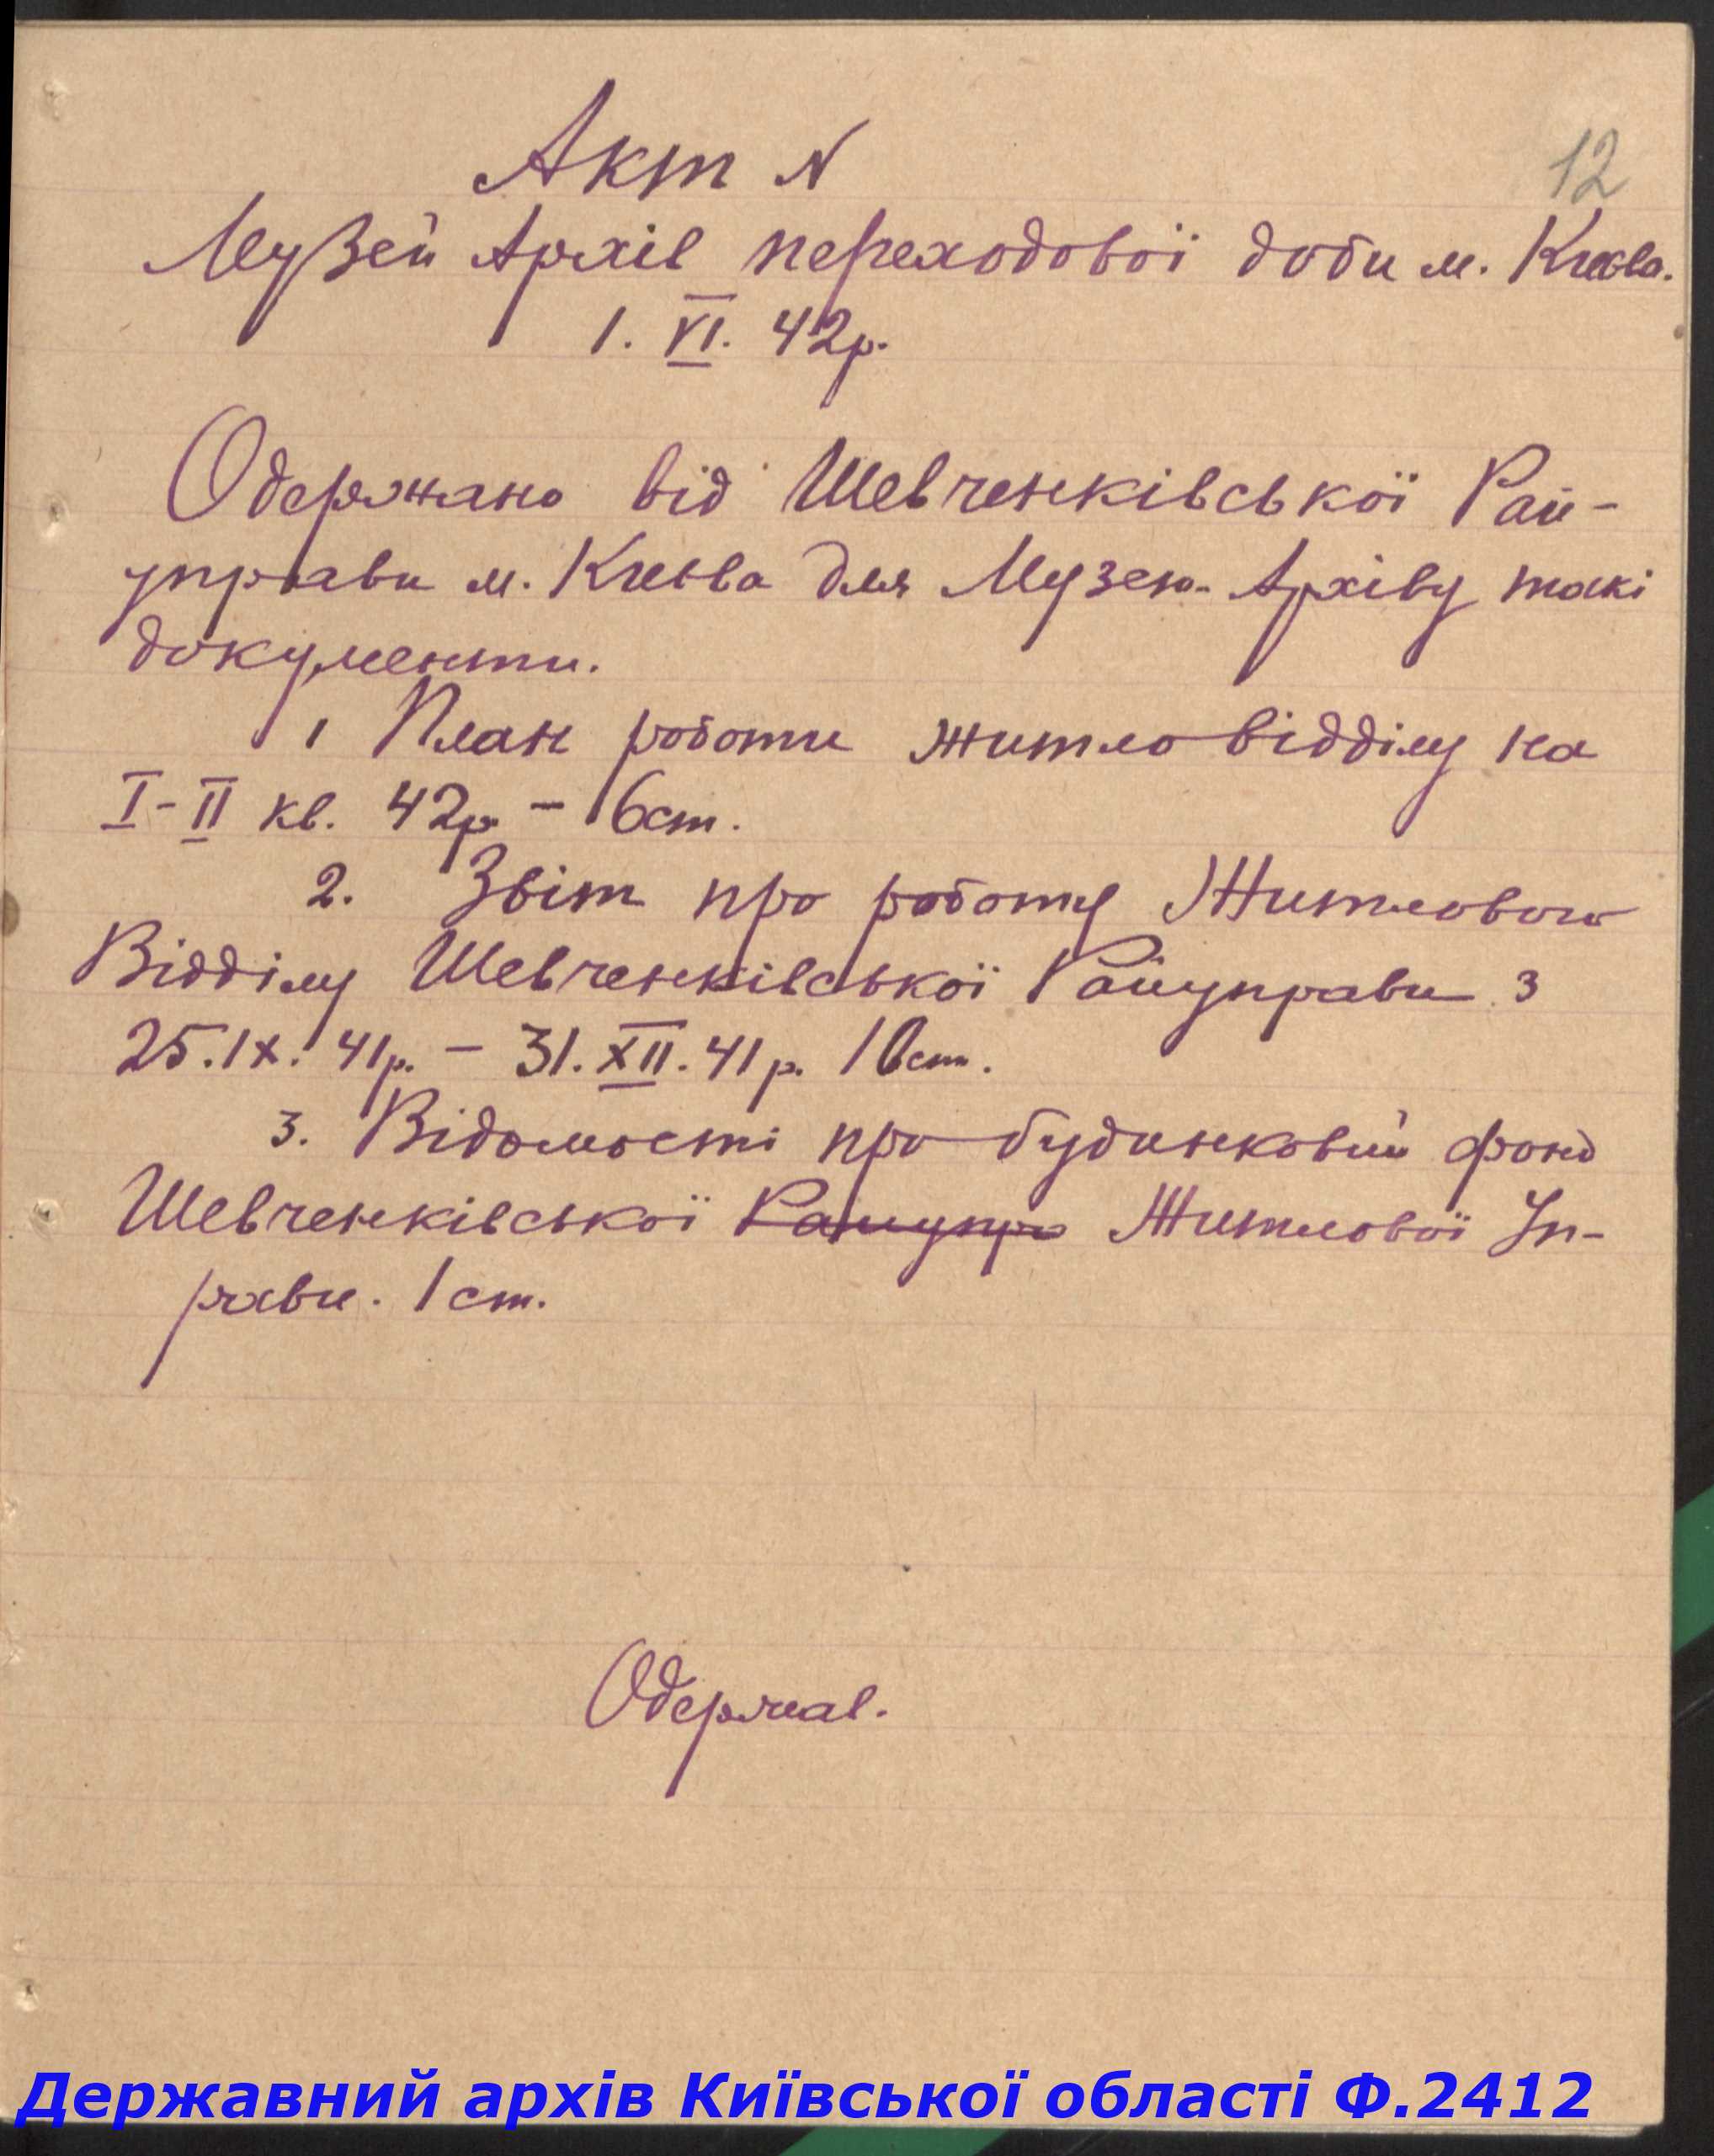 12
Акт N
Музей Архів переходової доби м. Києва.
1. VI. 42р.
Одержано від Шевченківської Рай-
управи м. Києва для Музею-Архіву такі
документи.
1 План роботи житловідділу на
I-II кв. 42р - 6 ст.
2. Звіт про роботу Житлового
Відділу Шевченківської Райуправи з
25.IX.41р. - 31.XII.41р. ст.
3. Відомості про будинковий фонд
Шевченківської Райупр Житлової Уп-
рави. 1 ст.
Одержав.
Державний архів Київської області Ф.2412